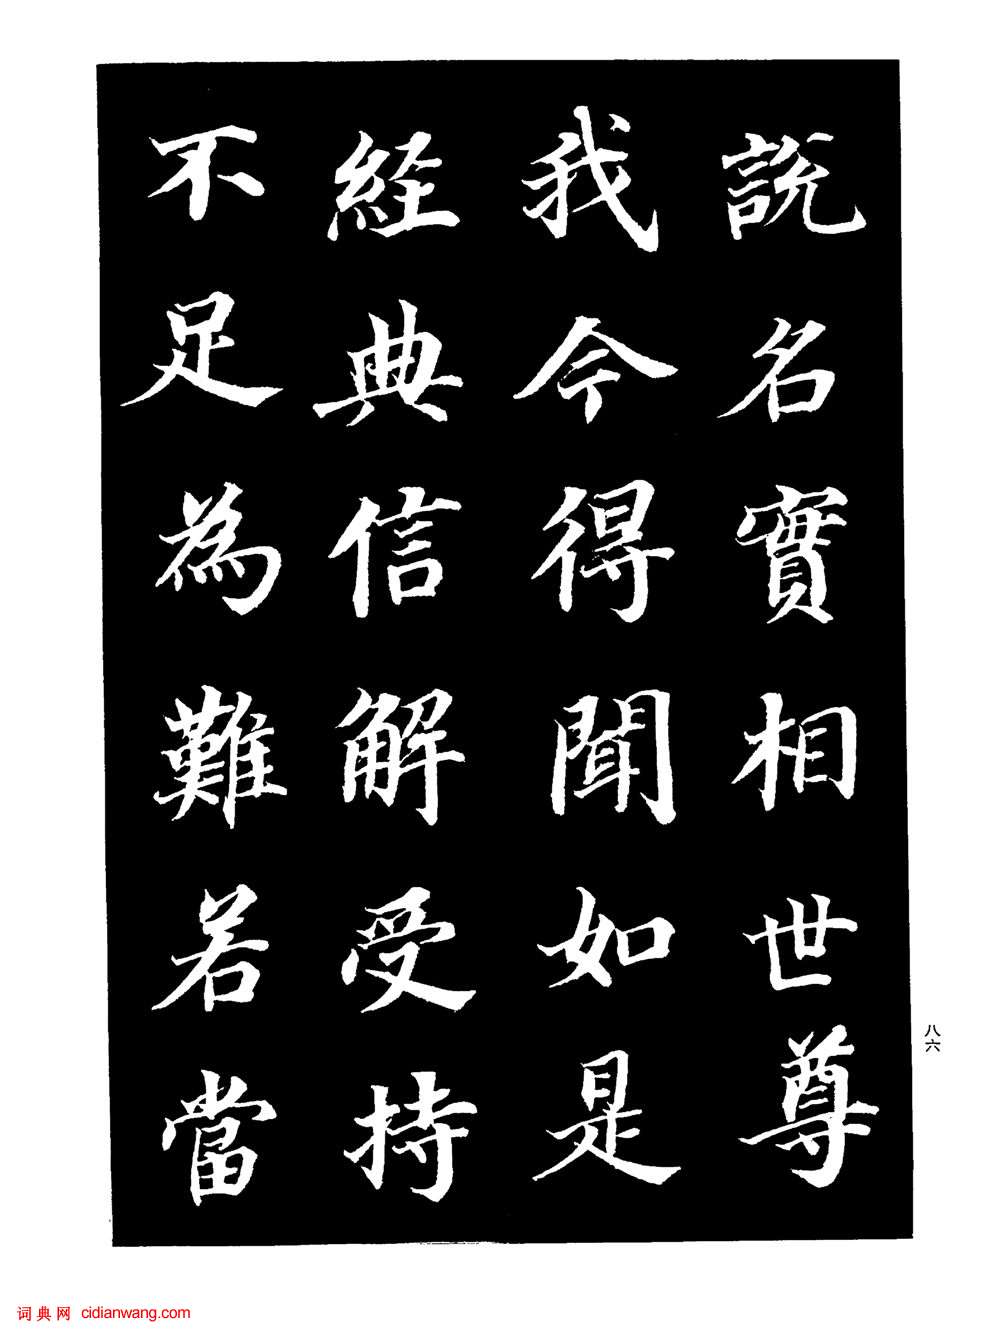 說名實相世尊
我今得聞如是
經典信解受持
不足為難若當
八六
词典网 cidianwang.com